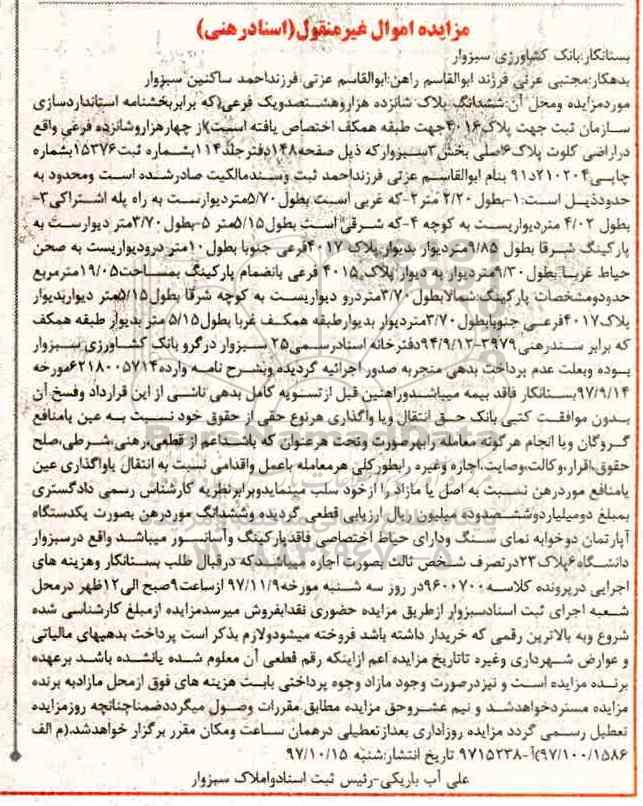 مزایده اموال غیرمنقول(اسنادرهنی)
بستانکار:بانک کشاورزی سبزوار
بدهکار:مجتبی عزتی فرزند ابوالقاسم راهن:ابوالقاسم عزتی فرزنداحمد ساکنین سبزوار
موردمزایده ومحل آن:ششدانگ پلاک شانزده هزاروهشتصدویک فرعی(که برابربخشنامه استانداردسازی
سازمان ثبت جهت پلاک۴۰۱۶جهت طبقه همکف اختصاص یافته است)از چهارهزاروشانزده فرعی واقع
دراراضی کلوت پلاک۶اصلی بخش۳سبزوارکه ذیل صفحه۱۴۸دفترجلد۱۱۴بشماره ثبت۱۵۳۷۶بشماره
چاپی۲۱۰۲۰۴د۹۱ بنام ابوالقاسم عزتی فرزنداحمد ثبت وسندمالکیت صادرشده است ومحدود به
حدودذیل است:۱-بطول ۲/۲۰ متر ۲-که غربی است بطول۵/۷۰متردیواراست به راه پله اشتراکی۳-
بطول ۴/۰۲ متردیواریست به کوچه ۴-که شرقی است بطول۵/۱۵متر ۵-بطول۳/۷۰متر دیوارست به
پارکینگ شرقا بطول ۹/۸۵متردیوار بدیوارپلاک ۴۰۱۷فرعی جنوبا بطول۱۰متر درودیواریست به صحن
حیاط غربا بطول۹/۳۰متردیوار به دیوار پلاک ۴۰۱۵ فرعی بانضمام پارکینگ بمساحت۱۹/۰۵مترمربع
حدودومشخصات پارکینگ:شمالابطول۳/۷۰متردرو دیواریست به کوچه شرقا بطول۵/۱۵متر دیواربدیوار
پلاک۴۰۱۷فرعی جنوبابطول۳/۷۰متردیوار بدیوارطبقه همکف غربا بطول۵/۱۵ متر بدیوار طبقه همکف
که برابر سندرهنی۳۹۷۹-۹۴/۹/۱۲دفترخانه اسنادرسمی۲۵ سبزوار درگرو بانک کشاورزی سبزوار
بوده وبعلت عدم پرداخت بدهی منجربه صدور اجرائیه گردیده وبشرح نامه وارده۶۲۱۸۰۰۵۷۱۴مورخه
۹۷/۹/۱۴بستانکار فاقد بیمه میباشدوراهنین قبل ازتسویه کامل بدهی ناشی از این قرارداد وفسخ آن
بدون موافقت کتبی بانک حق انتقال ویا واگذاری هرنوع حقی از حقوق خود نسبت به عین یامنافع
گروگان ویا انجام هرگونه معامله رابهرصورت وتحت هرعنوان که باشداعم از قطعی،رهنی،شرطی،صلح
حقوق،اقرار،وکالت،وصایت،اجاره وغیره رابطورکلی هرمعامله یاعمل واقدامی نسبت به انتقال یاواگذاری عین
یامنافع موردرهن نسبت به اصل یا مازاد را ازخود سلب مینمایدوبرابرنظریه کارشناس رسمی دادگستری
بمبلغ دومیلیاردوششصدوده میلیون ریال ارزیابی قطعی گردیده وششدانگ موردرهن بصورت یکدستگاه
آپارتمان دوخوابه نمای سنگ ودارای حیاط اختصاصی فاقدپارکینگ وآسانسور میباشد واقع درسبزوار
دانشگاه۶پلاک۲۳درتصرف شخص ثالث بصورت اجاره میباشدکه درقبال طلب بستانکار وهزینه های
اجرایی درپرونده کلاسه۹۶۰۰۷۰۰در روز سه شنبه مورخه۹۷/۱۱/۹ ازساعت۹صبح الی۱۲ظهر درمحل
شعبه اجرای ثبت اسنادسبزوار ازطریق مزایده حضوری نقدابفروش میرسدمزایده ازمبلغ کارشناسی شده
شروع وبه بالاترین رقمی که خریدار داشته باشد فروخته میشودولازم بذکر است پرداخت بدهیهای مالیاتی
و عوارض شهرداری وغیره تاتاریخ مزایده اعم ازاینکه رقم قطعی آن معلوم شده یانشده باشد برعهده
برنده مزایده است و نیزدرصورت وجود مازاد وجوه پرداختی بابت هزینه های فوق ازمحل مازادبه برنده
مزایده مستردخواهدشد و نیم عشروحق مزایده مطابق مقررات وصول میگرددضمناچنانچه روزمزایده
تعطیل رسمی گردد مزایده روزاداری بعدازتعطیلی درهمان ساعت ومکان مقرر برگزار خواهدشد.(م الف
۹۷/۱۰۰/۱۵۸۶)آ-۹۷۱۵۲۳۸ تاریخ انتشار:شنبه ۹۷/۱۰/۱۵
علی آب باریکی-رئیس ثبت اسنادواملاک سبزوار